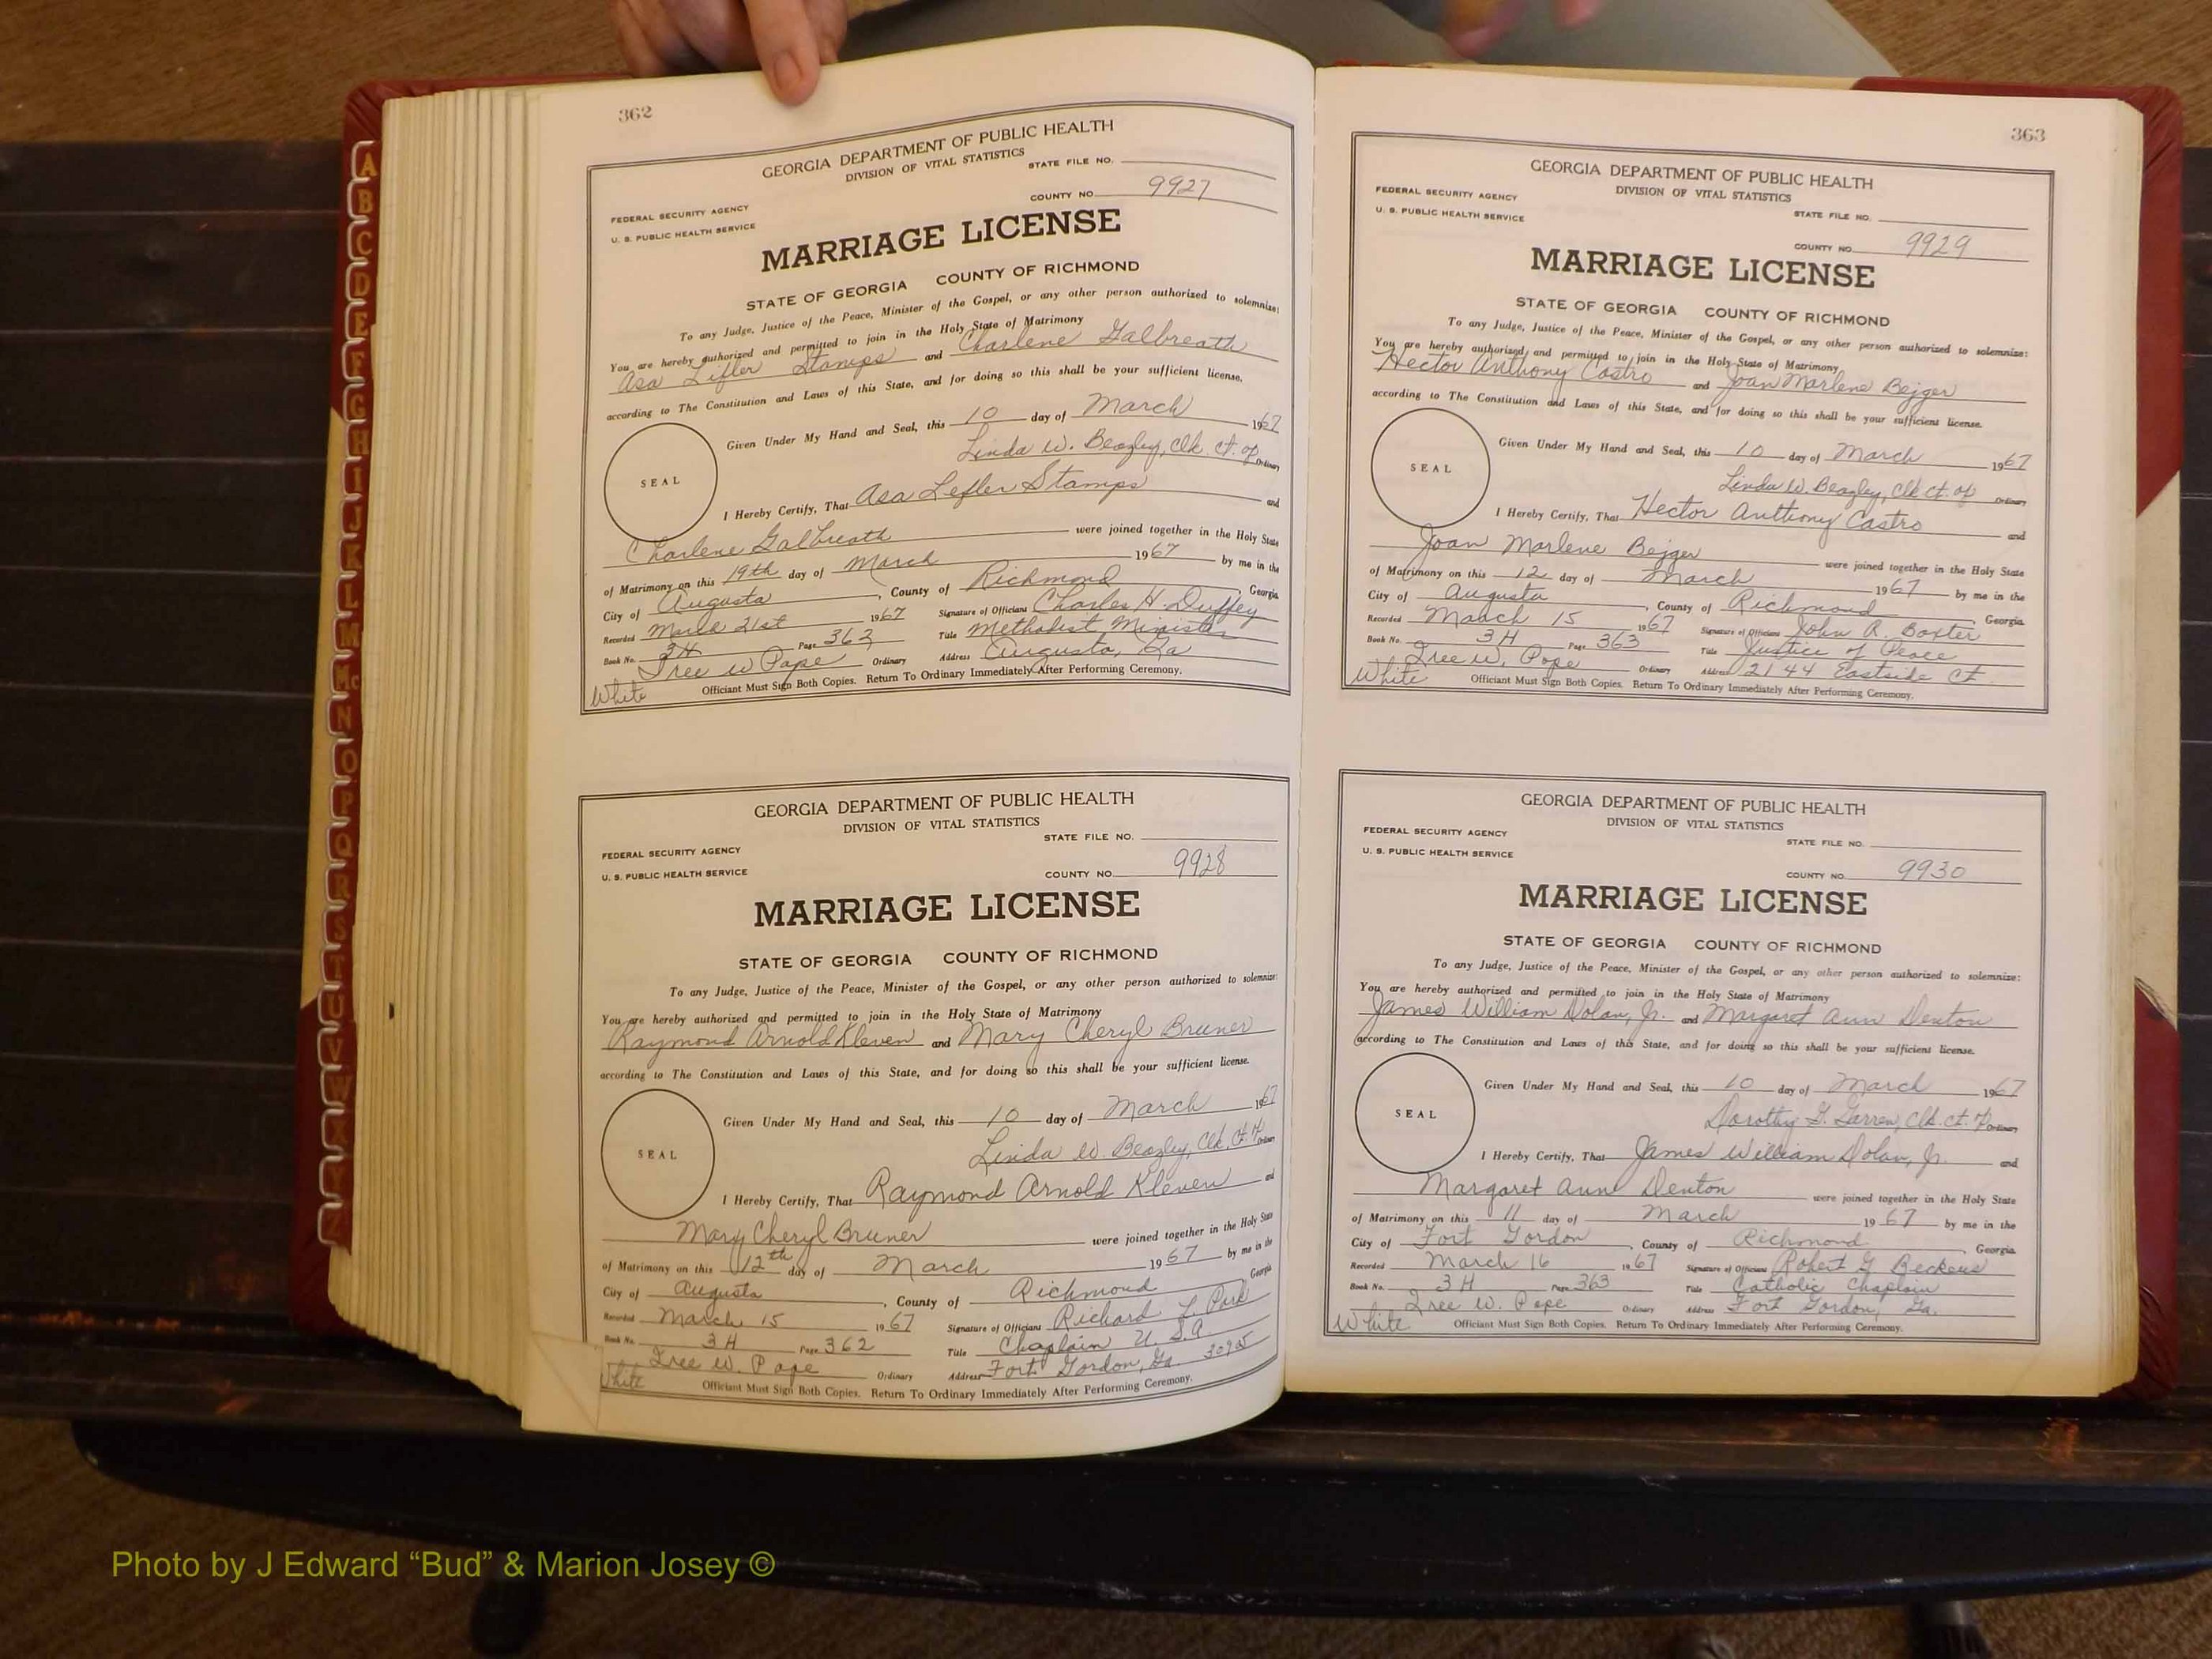 362
GEORGIA DEPARTMENT OF PUBLIC HEALTH
DIVISION OF VITAL STATISTICS
STATE FILE NO.
COUNTY NO. 9927
FEDERAL SECURITY AGENCY
U. S. PUBLIC HEALTH SERVICE
MARRIAGE LICENSE
STATE OF GEORGIA COUNTY OF RICHMOND
To any Judge, Justice of the Peace, Minister of the Gospel, or any other person authorized to solemnize:
You are hereby authorized and permitted to join in the Holy State of Matrimony
Asa Lifler Stamps and Charlene Galbreath
according to The Constitution and Laws of this State, and for doing so this shall be your sufficient license.
Given Under My Hand and Seal, this 10 day of March 1967
Linda W. Beazley, Clk. Ct. of Ordinary
SEAL
I Hereby Certify, That Asa Lefler Stamps and
Charlene Galbreath were joined together in the Holy State
of Matrimony on this 19th day of March 1967 by me in the
City of Augusta, County of Richmond, Georgia
Recorded 21st 1967 Signature of Officiant Charles H. Duffey
Book No. 3H Page 362 Title Methodist Minister
W Pope Ordinary Address Augusta, Ga
White Officiant Must Sign Both Copies. Return To Ordinary Immediately After Performing Ceremony.
GEORGIA DEPARTMENT OF PUBLIC HEALTH
DIVISION OF VITAL STATISTICS
STATE FILE NO.
FEDERAL SECURITY AGENCY
U. S. PUBLIC HEALTH SERVICE
COUNTY NO. 9928
MARRIAGE LICENSE
STATE OF GEORGIA COUNTY OF RICHMOND
To any Judge, Justice of the Peace, Minister of the Gospel, or any other person authorized to solemnize:
You are hereby authorized and permitted to join in the Holy State of Matrimony
Raymond Arnold Kleven and Mary Cheryl Bruner
according to The Constitution and Laws of this State, and for doing so this shall be your sufficient license.
Given Under My Hand and Seal, this 10 day of March 1967
Linda W. Beazley, Clk. Ct. of Ordinary
SEAL
I Hereby Certify, That Raymond Arnold Kleven and
Mary Cheryl Bruner were joined together in the Holy State
of Matrimony on this 12th day of March 1967 by me in the
City of Augusta, County of Richmond Georgia
Recorded March 15 1967 Signature of Officiant Richard L. Park
Book No. 3H Page 362 Title Chaplain U S A
W. Pope Ordinary Address Fort Gordon, Ga. 30905
White Officiant Must Sign Both Copies. Return To Ordinary Immediately After Performing Ceremony.
363
GEORGIA DEPARTMENT OF PUBLIC HEALTH
DIVISION OF VITAL STATISTICS
FEDERAL SECURITY AGENCY
U. S. PUBLIC HEALTH SERVICE
STATE FILE NO.
COUNTY NO. 9929
MARRIAGE LICENSE
STATE OF GEORGIA COUNTY OF RICHMOND
To any Judge, Justice of the Peace, Minister of the Gospel, or any other person authorized to solemnize:
You are hereby authorized and permitted to join in the Holy State of Matrimony
Hector Anthony Castro and Joan Marlene Bejger
according to The Constitution and Laws of this State, and for doing so this shall be your sufficient license.
Given Under My Hand and Seal, this 10 day of March 1967
Linda W. Beazley, Clk Ct. of Ordinary
SEAL
I Hereby Certify, That Hector Anthony Castro and
Joan Marlene Bejger were joined together in the Holy State
of Matrimony on this 12 day of March 1967 by me in the
City of Augusta, County of Richmond, Georgia
Recorded March 15 1967 Signature of Officiant John R. Baxter
Book No. 3H Page 363 Title Justice of Peace
W. Pope Ordinary Address 2144 Eastside Ct.
White Officiant Must Sign Both Copies. Return To Ordinary Immediately After Performing Ceremony.
GEORGIA DEPARTMENT OF PUBLIC HEALTH
DIVISION OF VITAL STATISTICS
FEDERAL SECURITY AGENCY
U. S. PUBLIC HEALTH SERVICE
STATE FILE NO.
COUNTY NO. 9930
MARRIAGE LICENSE
STATE OF GEORGIA COUNTY OF RICHMOND
To any Judge, Justice of the Peace, Minister of the Gospel, or any other person authorized to solemnize:
You are hereby authorized and permitted to join in the Holy State of Matrimony
James William Dolan, Jr. and Margaret Ann Denton
according to The Constitution and Laws of this State, and for doing so this shall be your sufficient license.
Given Under My Hand and Seal, this 10 day of March 1967
Dorothy G. Garren, Clk. Ct. of Ordinary
SEAL
I Hereby Certify, That James William Dolan, Jr. and
Margaret Ann Denton were joined together in the Holy State
of Matrimony on this 11 day of March 1967 by me in the
City of Fort Gordon, County of Richmond, Georgia
Recorded March 16 1967 Signature of Officiant Robert G Beckens
Book No. 3H Page 363 Title Catholic Chaplain
W. Pope Ordinary Address Fort Gordon, Ga.
White Officiant Must Sign Both Copies. Return To Ordinary Immediately After Performing Ceremony.
A
B
C
D
E
F
G
H
I
J
K
L
M
Mc
N
O
P
Q
R
S
T
U
V
W
X
Y
Z
Photo by J Edward “Bud” & Marion Josey ©